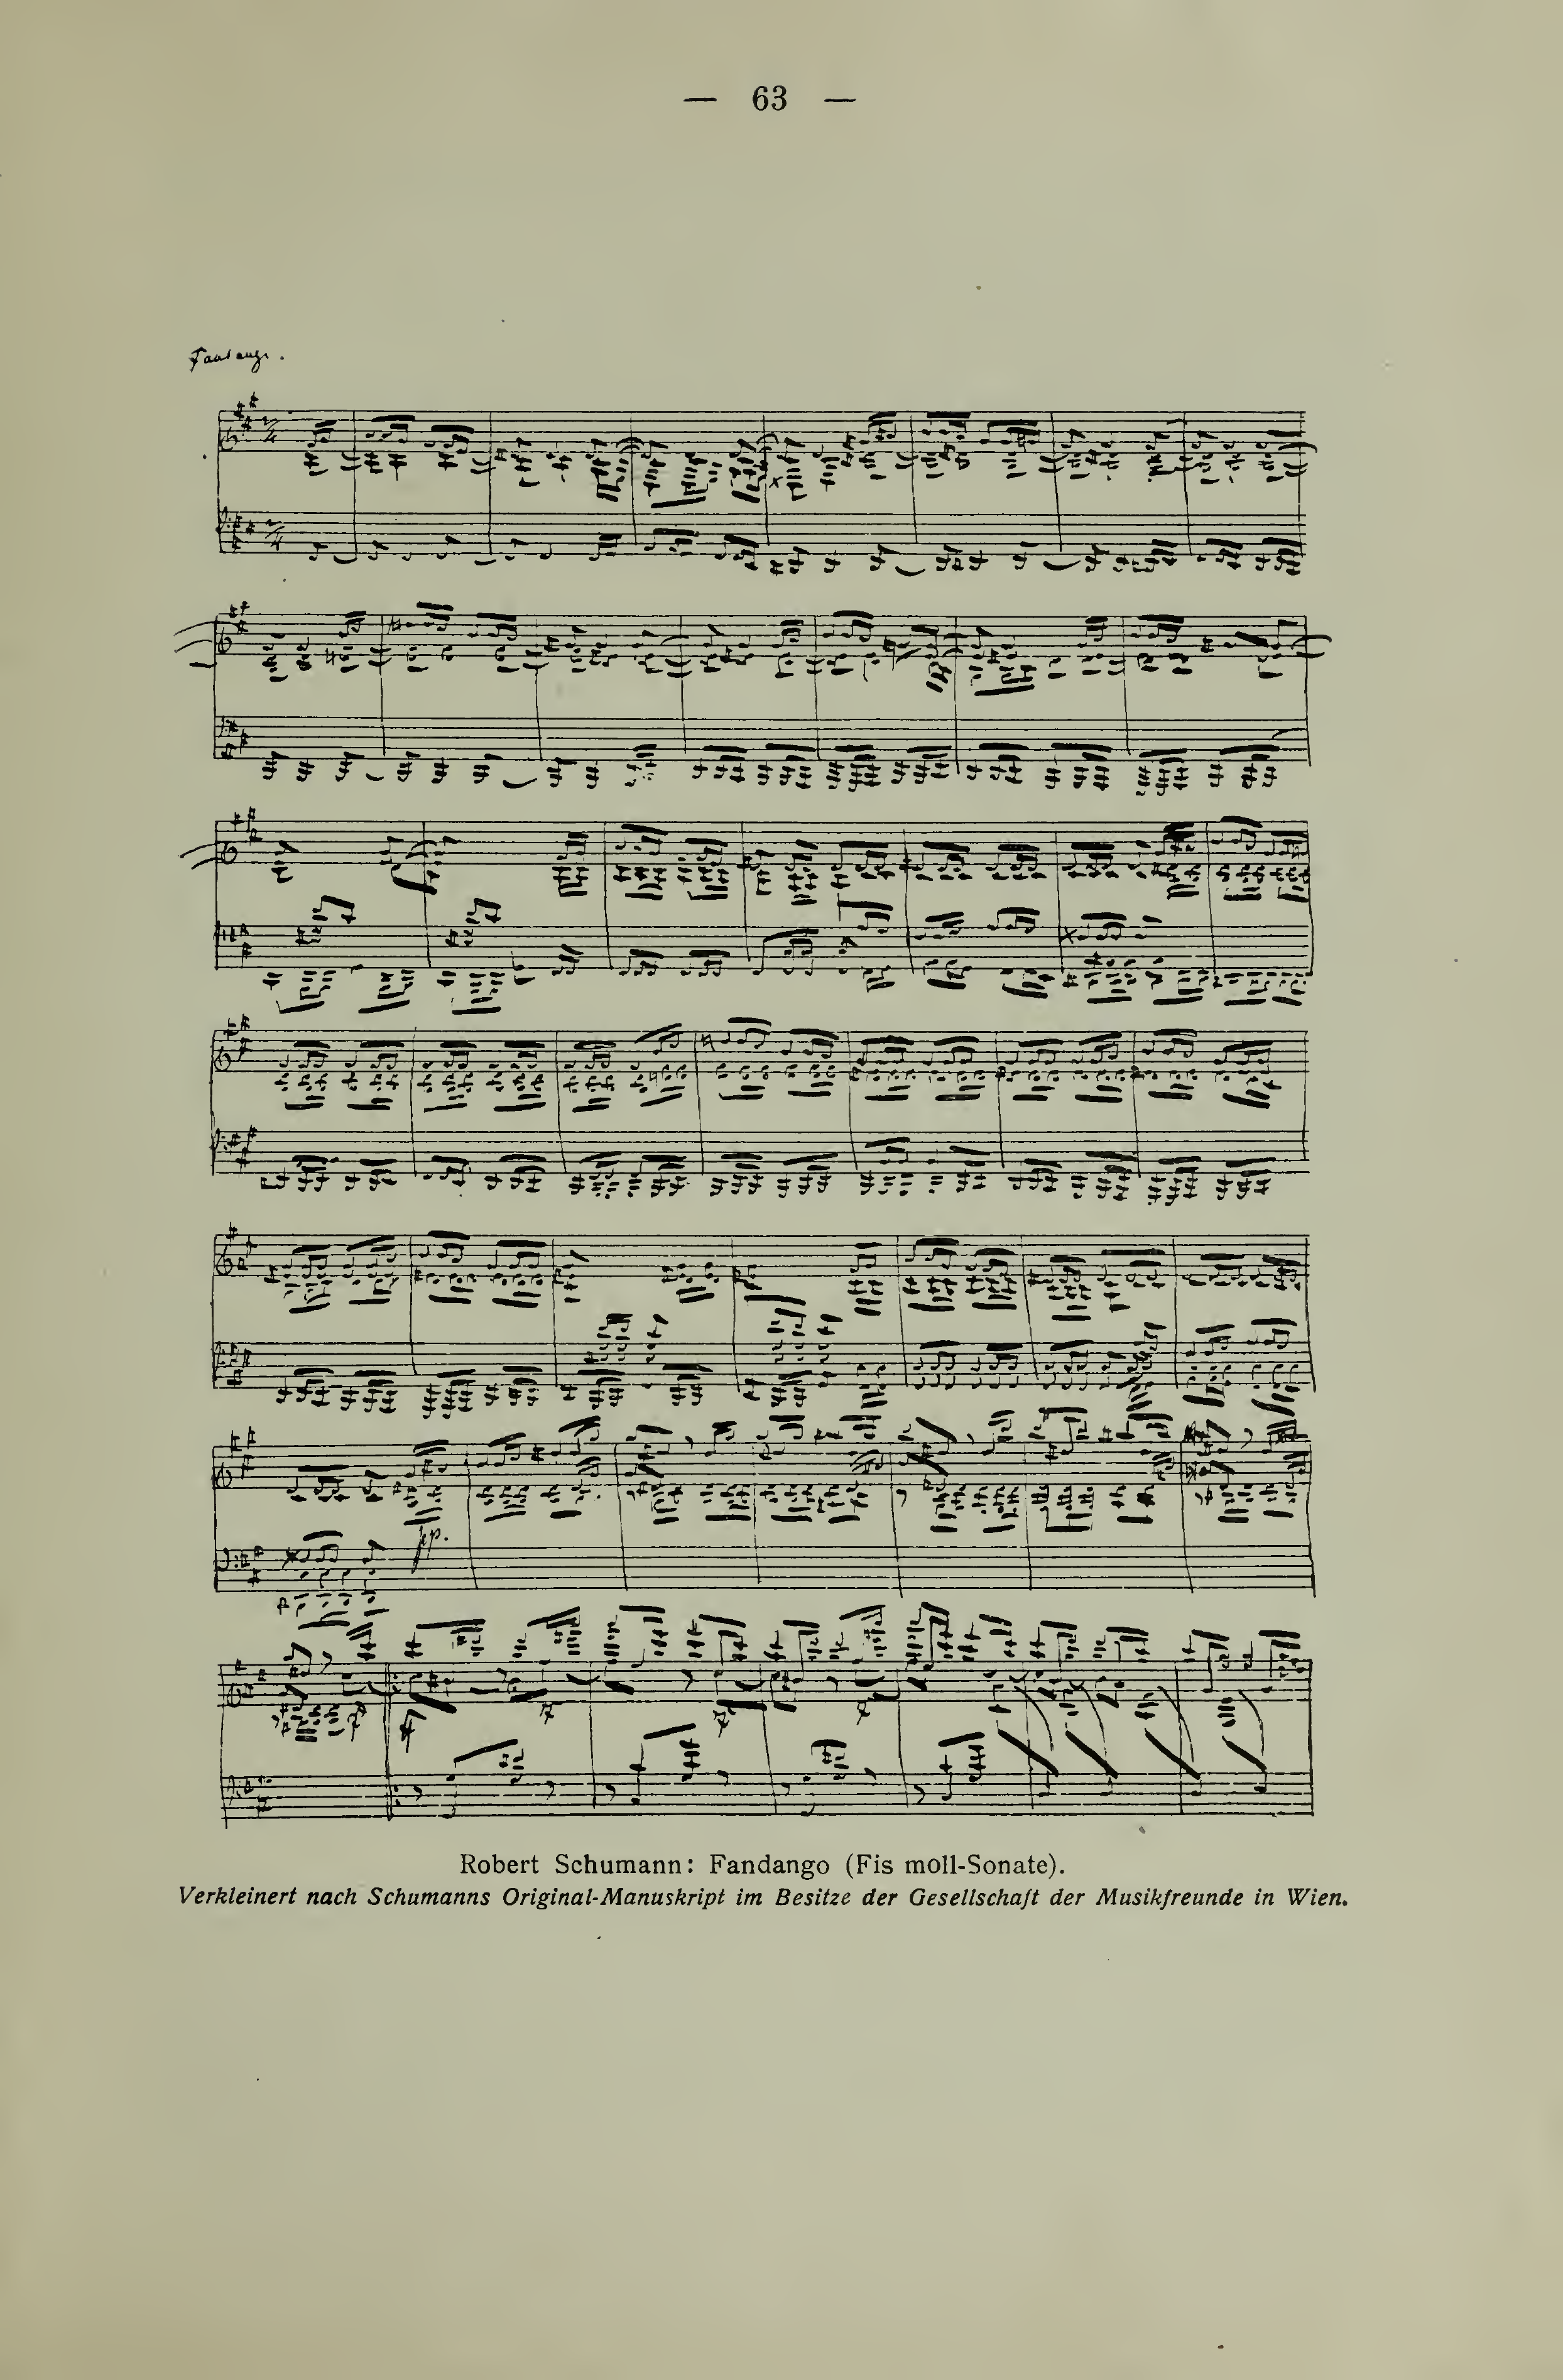 — 63 —
Fandango.
2/4
2/4
pp.
Robert Schumann: Fandango (Fis moll-Sonate).
Verkleinert nach Schumanns Original-Manuskript im Besitze der Gesellschaft der Musikfreunde in Wien.